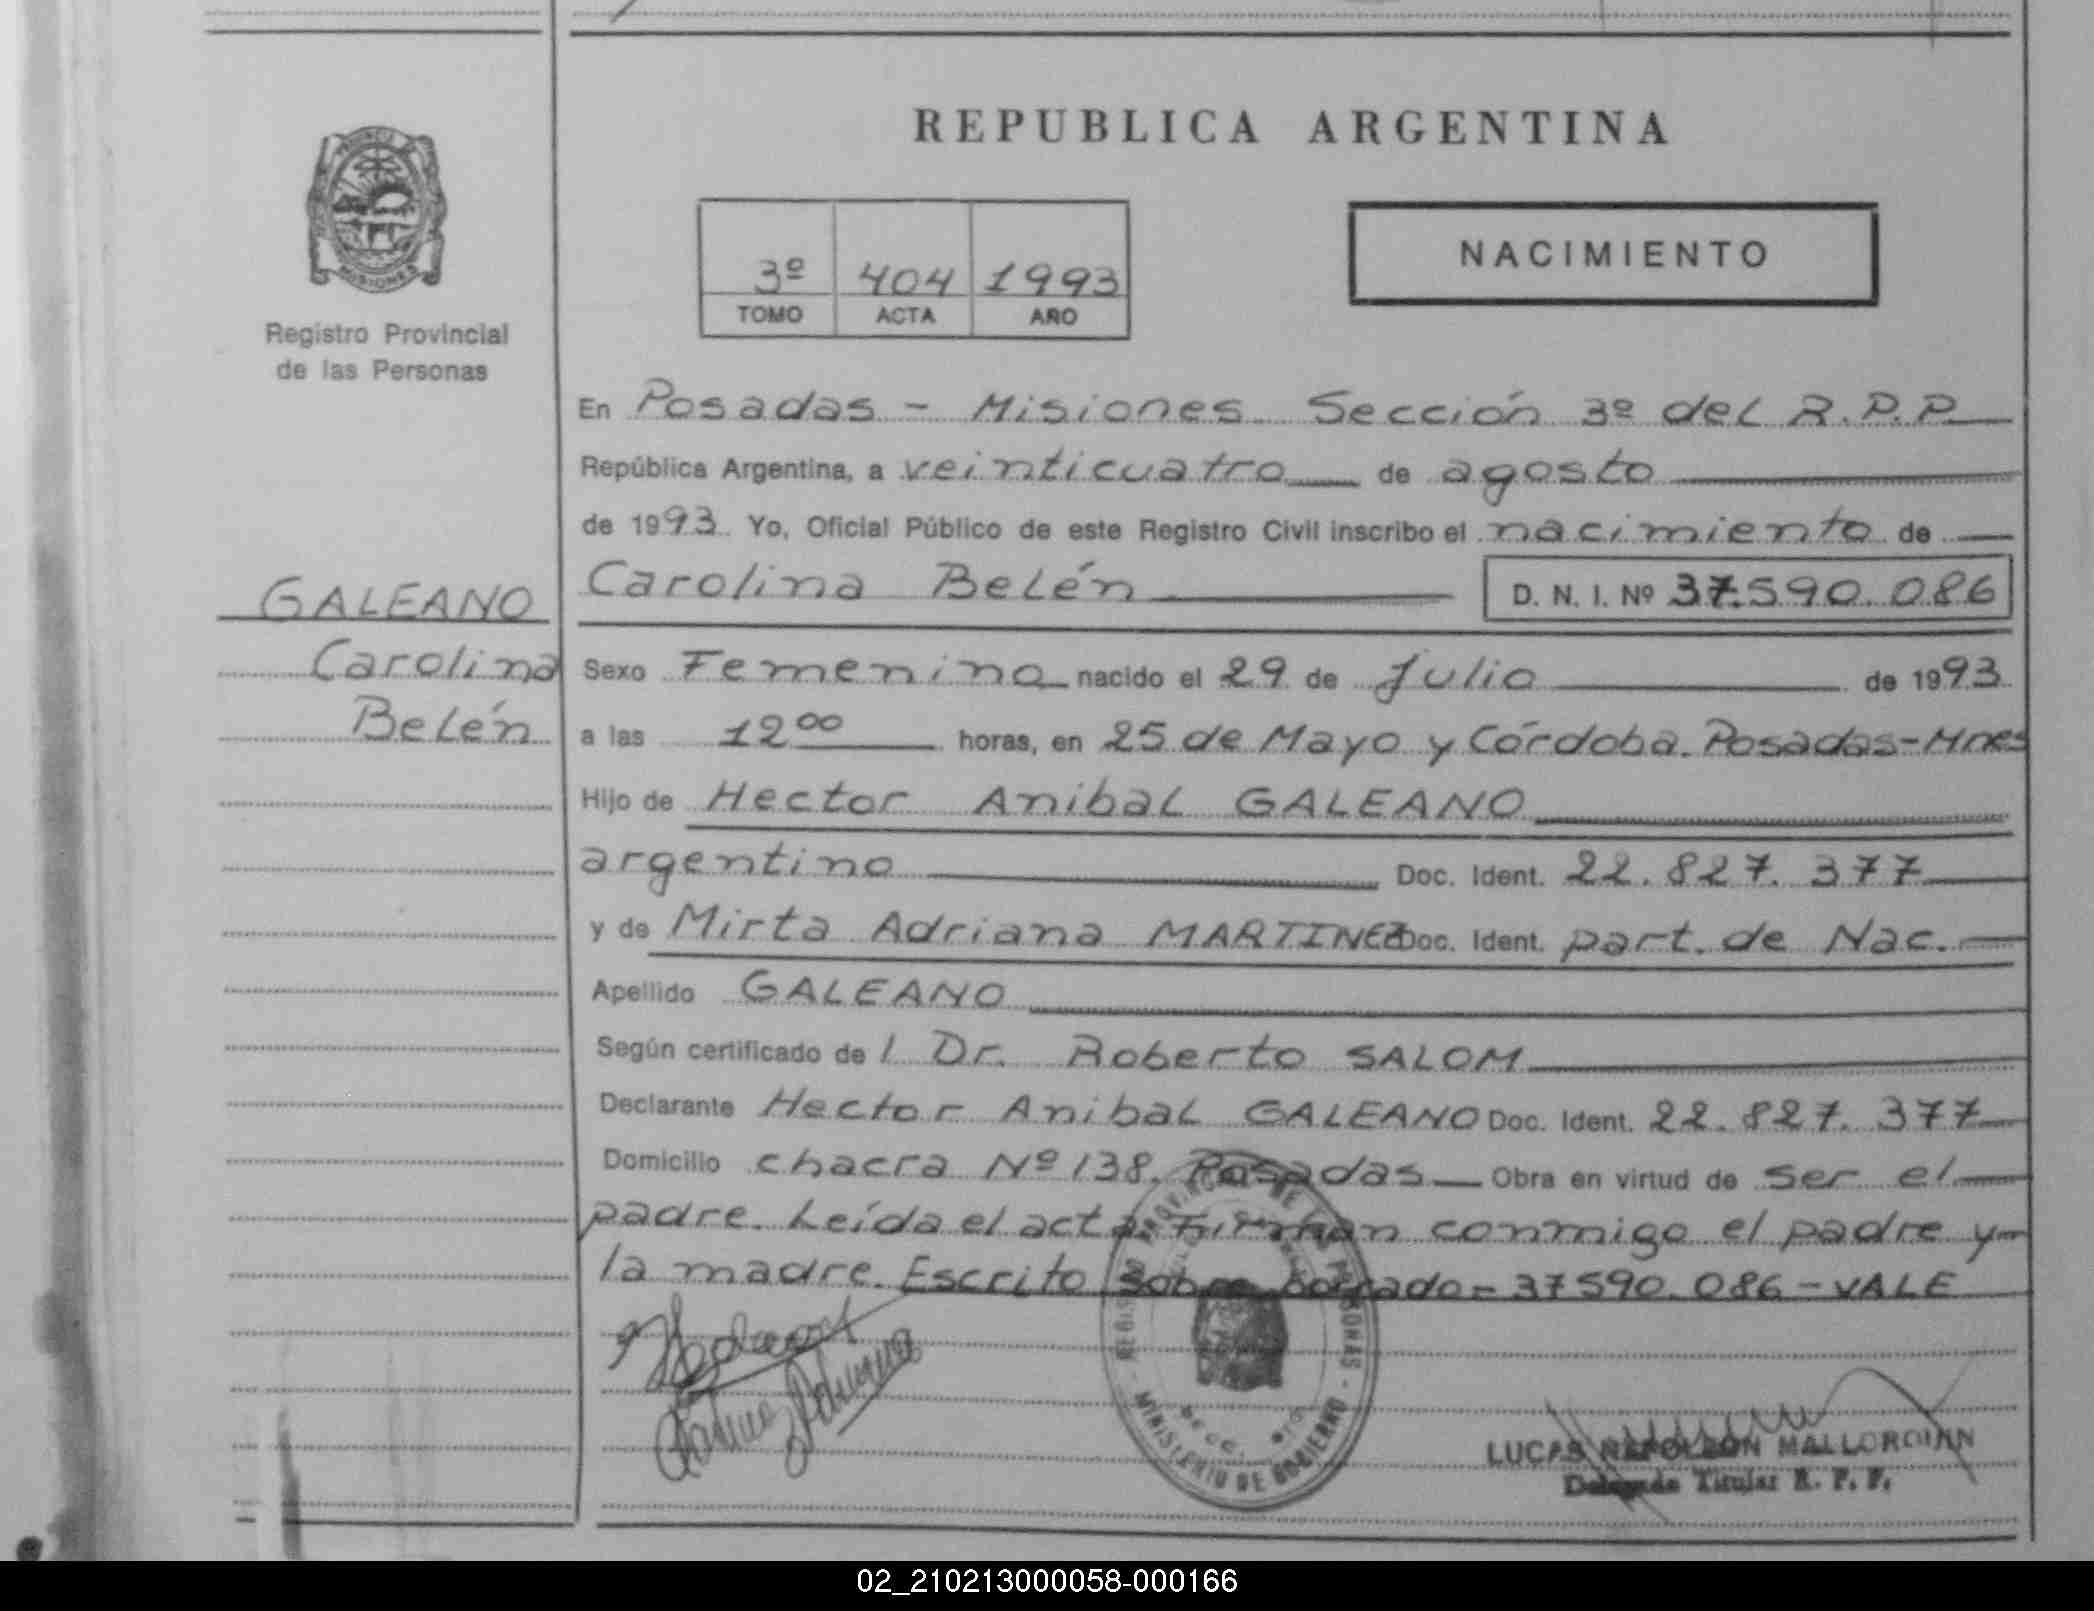 REPUBLICA ARGENTINA
PROVINCIA DE
MISIONES
Registro Provincial
de las Personas
3º 404 1993
TOMO ACTA AÑO
NACIMIENTO
En Posadas - Misiones Sección 3º del R.P.P.
República Argentina, a veinticuatro de agosto
de 1993. Yo, Oficial Público de este Registro Civil inscribo el nacimiento de
GALEANO
Carolina
Belén
Carolina Belén D. N. I. Nº 37.590.086
Sexo Femenino nacido el 29 de Julio de 1993
a las 12 00 horas, en 25 de Mayo y Córdoba. Posadas-Mnes
Hijo de Hector Anibal GALEANO
argentino Doc. Ident. 22.827.377
y de Mirta Adriana MARTINEZ Doc. Ident. part. de Nac.
Apellido GALEANO
Según certificado de l Dr. Roberto SALOM
Declarante Hector Anibal GALEANO Doc. Ident. 22.827.377
Domicilio chacra Nº 138. Posadas Obra en virtud de ser el
padre. Leída el acta Firman conmigo el padre y
la madre. Escrito sobre borrado - 37590.086 - VALE
REGISTRO PROVINCIAL DE LAS PERSONAS
- MINISTERIO DE GOBIERNO -
LUCAS NAPOLEON
Delegado Titular R. P. P.
02_210213000058-000166